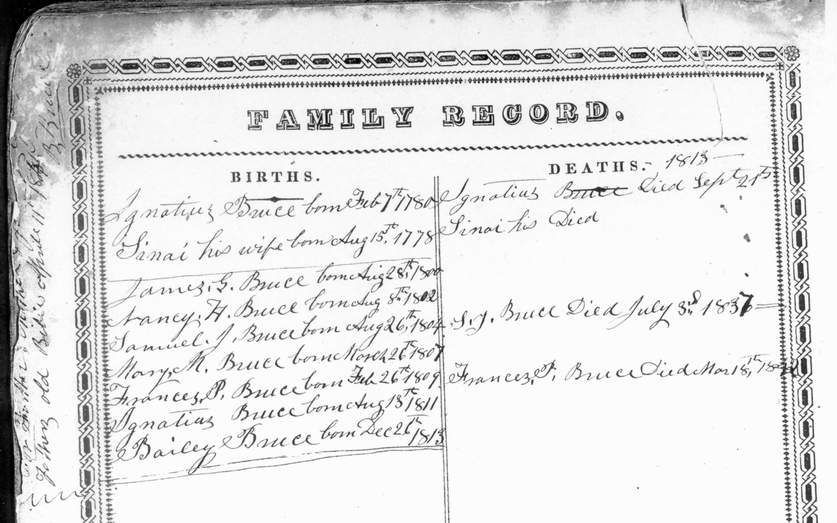 FAMILY RECORD.
BIRTHS.
Ignatius Bruce born Feb 7th 1780
Sinai his wife born Aug 15th, 1778
James, G. Bruce born Aug 28th, 1800
Nancy, H. Bruce born Aug 8th, 1802
Samuel. J. Bruce born Aug 26th, 1804
Mary, M. Bruce born March 26th 1807
Frances, P. Bruce born Feb. 26th 1809
Ignatius Bruce born Aug 13th 1811
Bailey Bruce born Dec 26th 1813
DEATHS.- 1813
Ignatius Bruce Died Sept 21th
Sinai his Died
S. J. Bruce Died July 3d. 1837
Frances, P. Bruce Died Mar 18th,
fathers old Bible April 11th
B Bruce